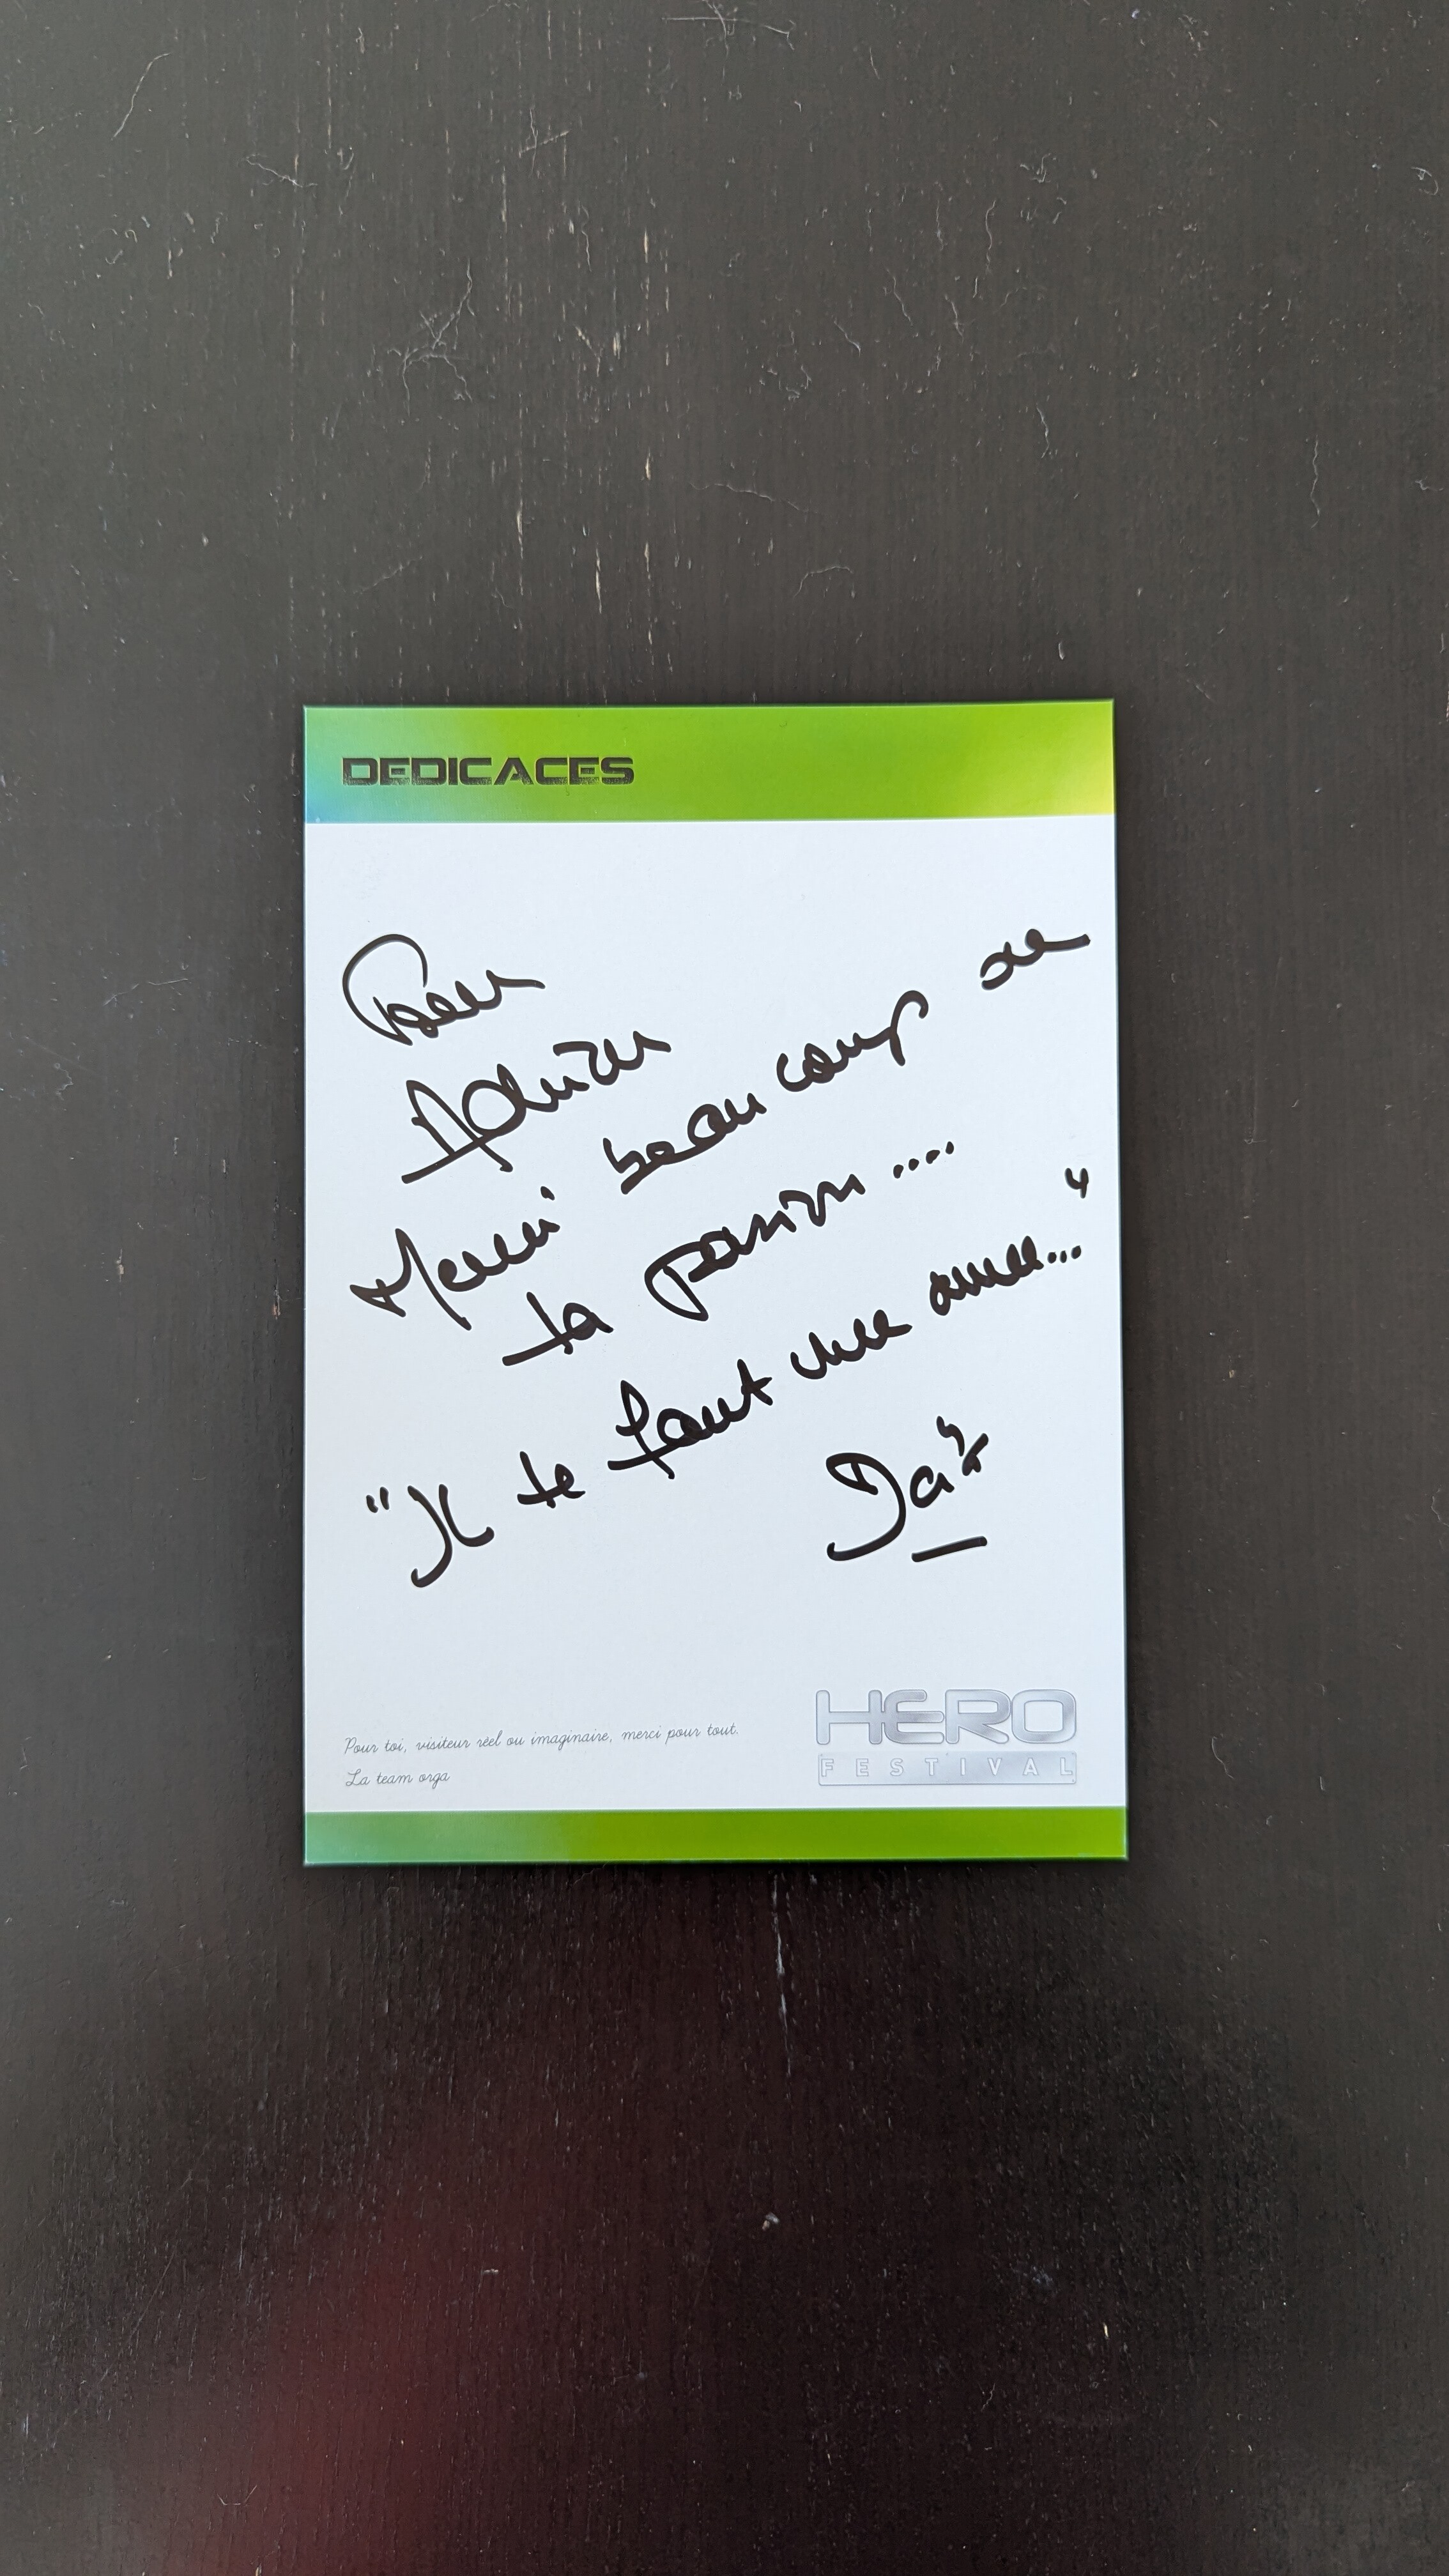 DEDICACES
Pour
Adrien
Merci beaucoup de
ta passion ....
"Il te faut une arme..."
Pour toi, visiteur réel ou imaginaire, merci pour tout.
La team orga
HERO
FESTIVAL